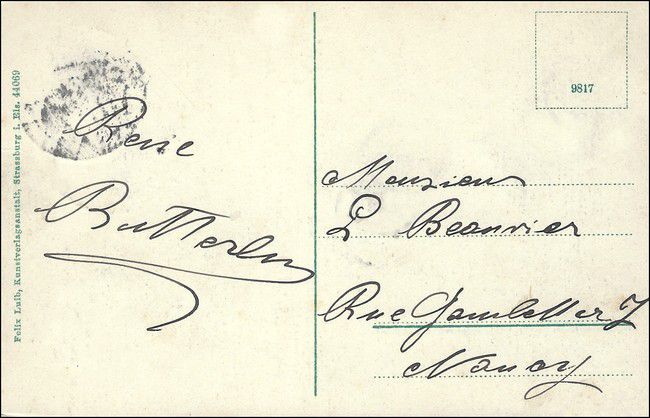 Felix Luib, Kunstverlagsanstalt, Strassburg i. Els. 44069
René
Butterlin
9817
Monsieur
L Beauvier
Rue Gambetta 7
Nancy